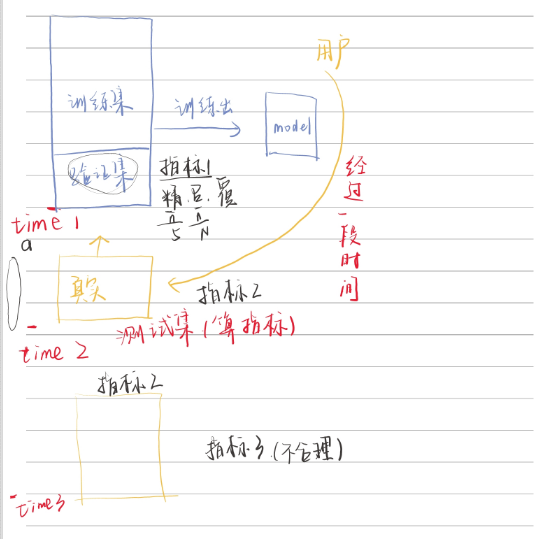 用户
训练集
训练出
model
验证集
指标1
精召覆
n n
5 N
经过一段时间
time 1
a
真实
指标2
测试集(算指标)
time 2
指标2
指标3(不合理)
time3